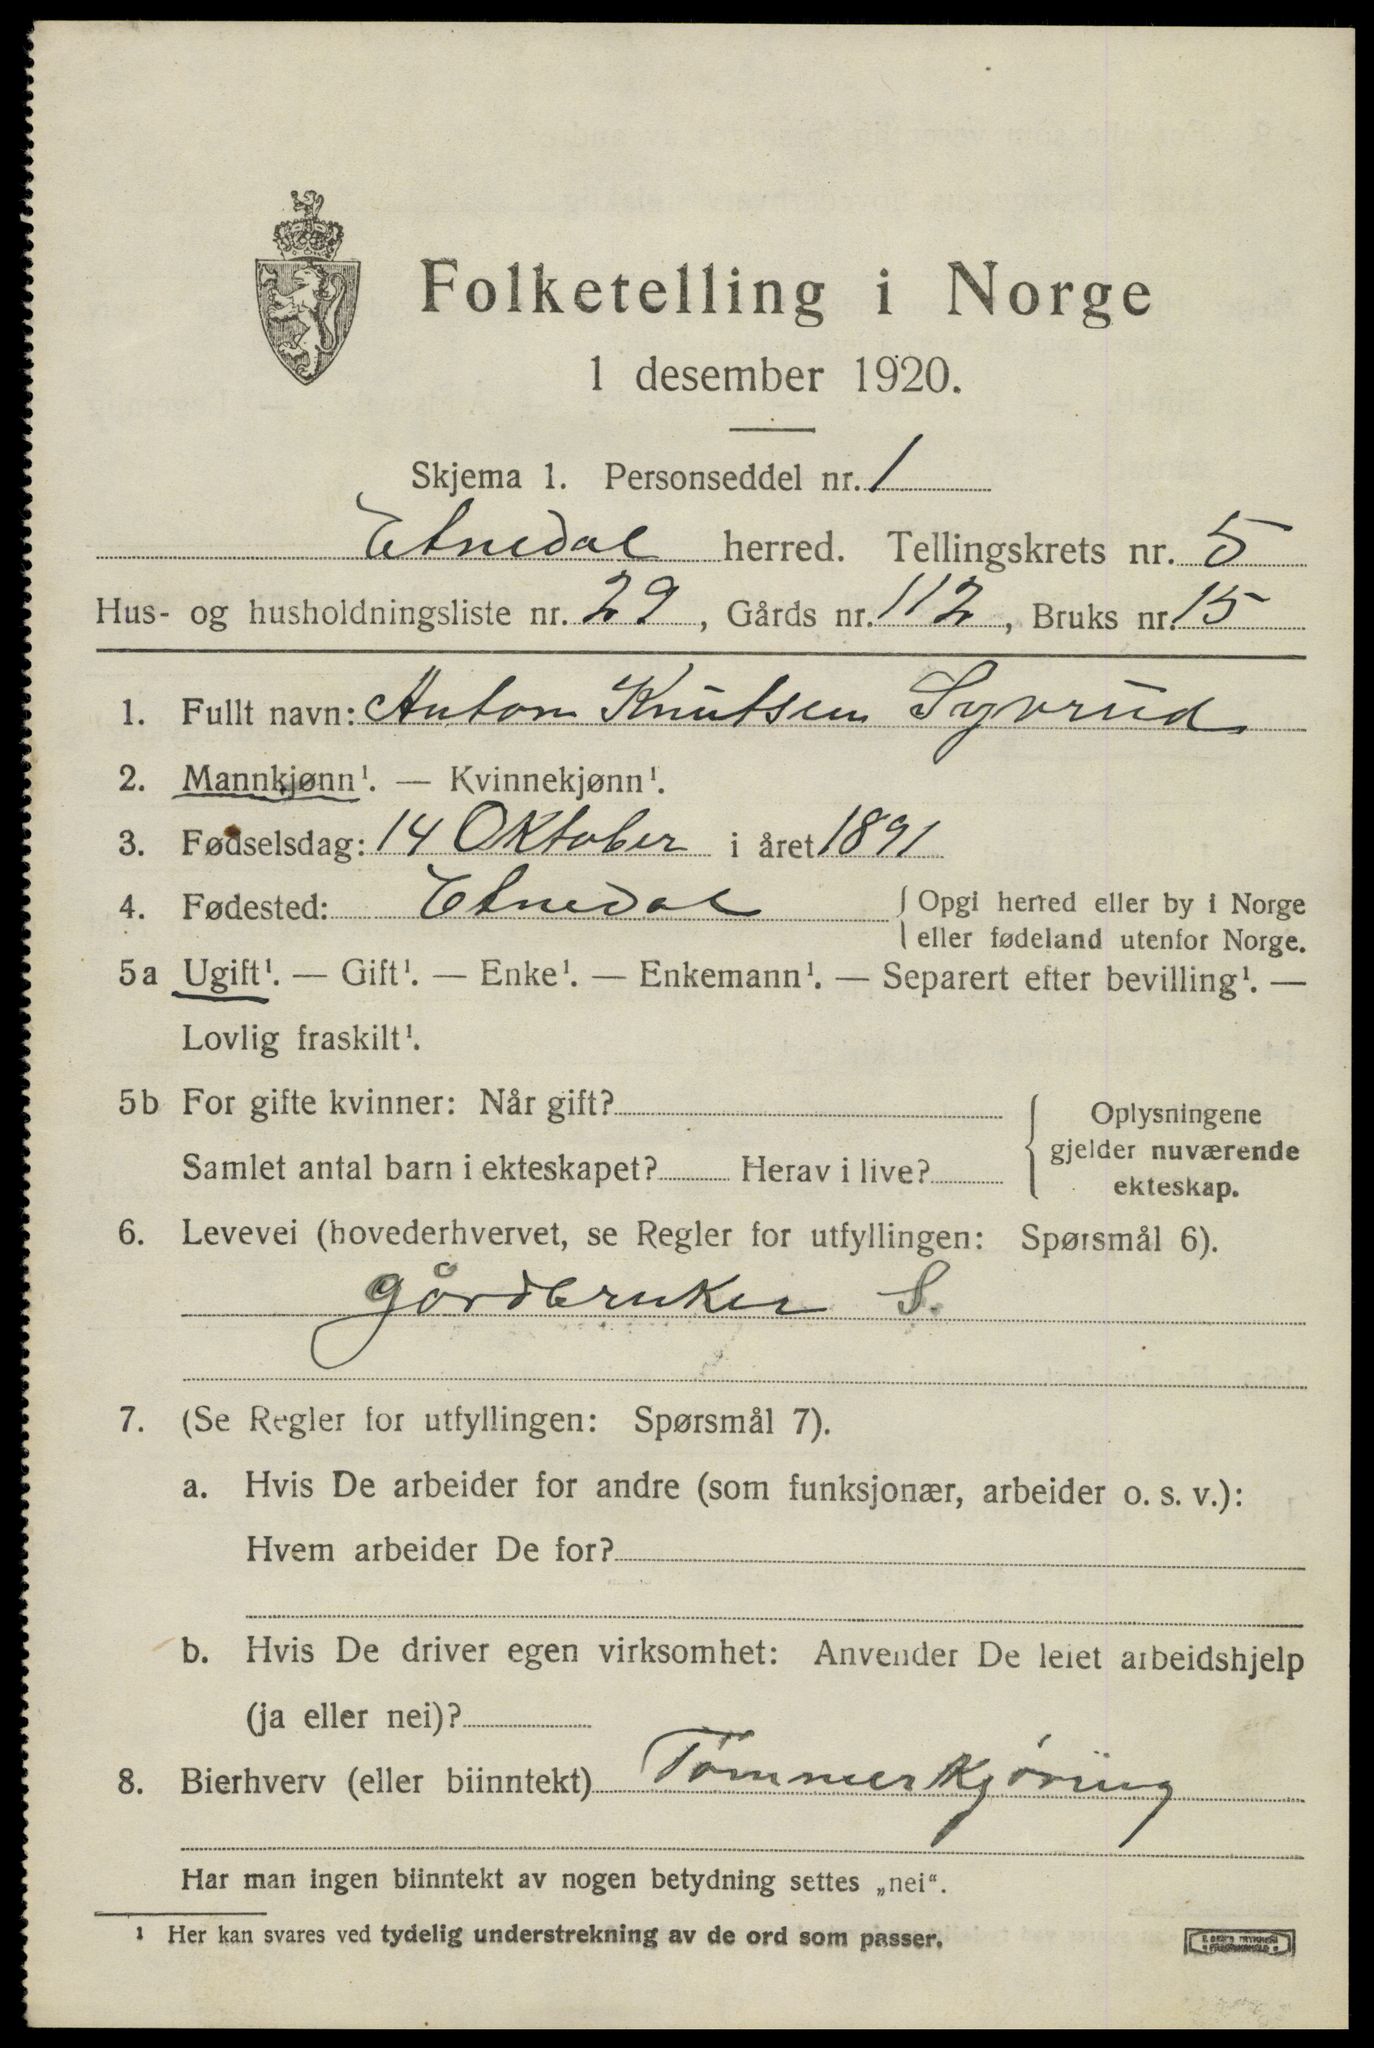 Folketelling i Norge
1 desember 1920.
Skjema 1. Personseddel nr. 1
Etnedal herred. Tellingskrets nr. 5
Hus- og husholdningsliste nr. 29, Gårds nr. 112, Bruks nr. 15
1. Fullt navn: Anton Knutsen Syvrud
2. Mannkjønn¹. — Kvinnekjønn¹.
3. Fødselsdag: 14 Oktober i året 1891
4. Fødested: Etnedal { Opgi herred eller by i Norge
eller fødeland utenfor Norge.
5a Ugift¹. — Gift¹. — Enke¹. — Enkemann¹. — Separert efter bevilling¹. —
Lovlig fraskilt¹.
5b For gifte kvinner: Når gift?
Samlet antal barn i ekteskapet? Herav i live?
{ Oplysningene
gjelder nuværende
ekteskap.
6. Levevei (hovederhvervet, se Regler for utfyllingen: Spørsmål 6).
Gårdbruker S.
7. (Se Regler for utfyllingen: Spørsmål 7).
a. Hvis De arbeider for andre (som funksjonær, arbeider o. s. v.):
Hvem arbeider De for?
b. Hvis De driver egen virksomhet: Anvender De leiet arbeidshjelp
(ja eller nei)?
8. Bierhverv (eller biinntekt) Tømmerkjøring
Har man ingen biinntekt av nogen betydning settes „nei“.
¹ Her kan svares ved tydelig understrekning av de ord som passer.